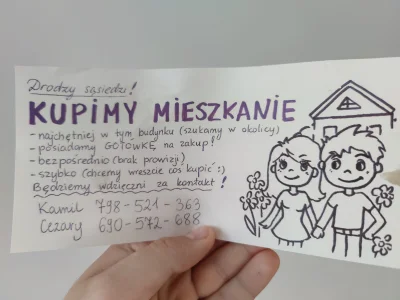 Drodzy sąsiedzi!
KUPIMY MIESZKANIE
- najchętniej w tym budynku (szukamy w okolicy)
- posiadamy GOTÓWKĘ na zakup!
- bezpośrednio (brak prowizji)
- szybko (chcemy wreszcie coś kupić :)
Będziemy wdzięczni za kontakt!
Kamil 798-521-363
Cezary 690-572-688